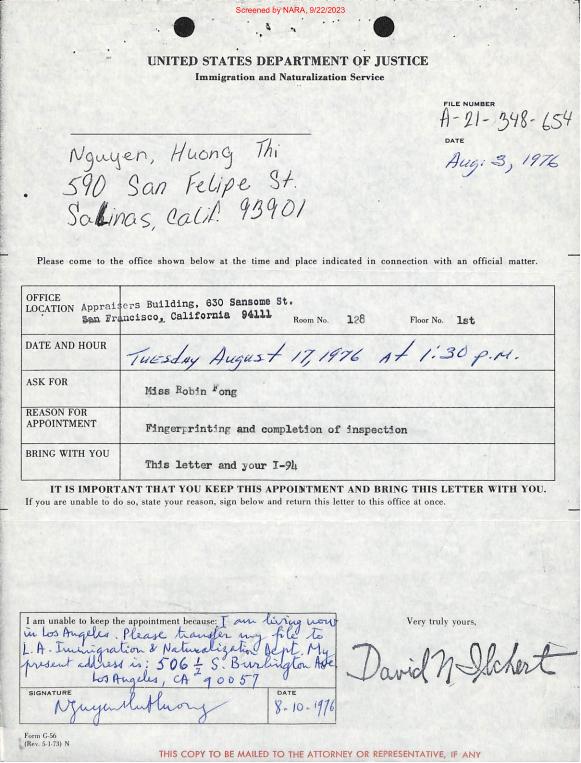 Screened by NARA, 9/22/2023
UNITED STATES DEPARTMENT OF JUSTICE
Immigration and Naturalization Service
FILE NUMBER
A-21-348-654
DATE
Aug. 3, 1976
Nguyen, Huong Thi
590 San Felipe St.
Salinas, Calif. 93901
Please come to the office shown below at the time and place indicated in connection with an official matter.
OFFICE LOCATION
Appraisers Building, 630 Sansome St.
San Francisco, California 94111 Room No. 128 Floor No. 1st
DATE AND HOUR
Tuesday August 17, 1976 at 1:30 p.m.
ASK FOR
Miss Robin Wong
REASON FOR APPOINTMENT
Fingerprinting and completion of inspection
BRING WITH YOU
This letter and your I-94
IT IS IMPORTANT THAT YOU KEEP THIS APPOINTMENT AND BRING THIS LETTER WITH YOU.
If you are unable to do so, state your reason, sign below and return this letter to this office at once.
I am unable to keep the appointment because: I am living now
in Los Angeles. Please transfer my file to
L.A. Immigration & Naturalization Dept. My
present address is: 506 ½ S. Burlington Ave
Los Angeles, CA 90057
SIGNATURE
NguyenthiHuong
DATE
8-10-1976
Very truly yours,
David N Ilchert
Form G-56
(Rev. 5-1-73) N
THIS COPY TO BE MAILED TO THE ATTORNEY OR REPRESENTATIVE, IF ANY